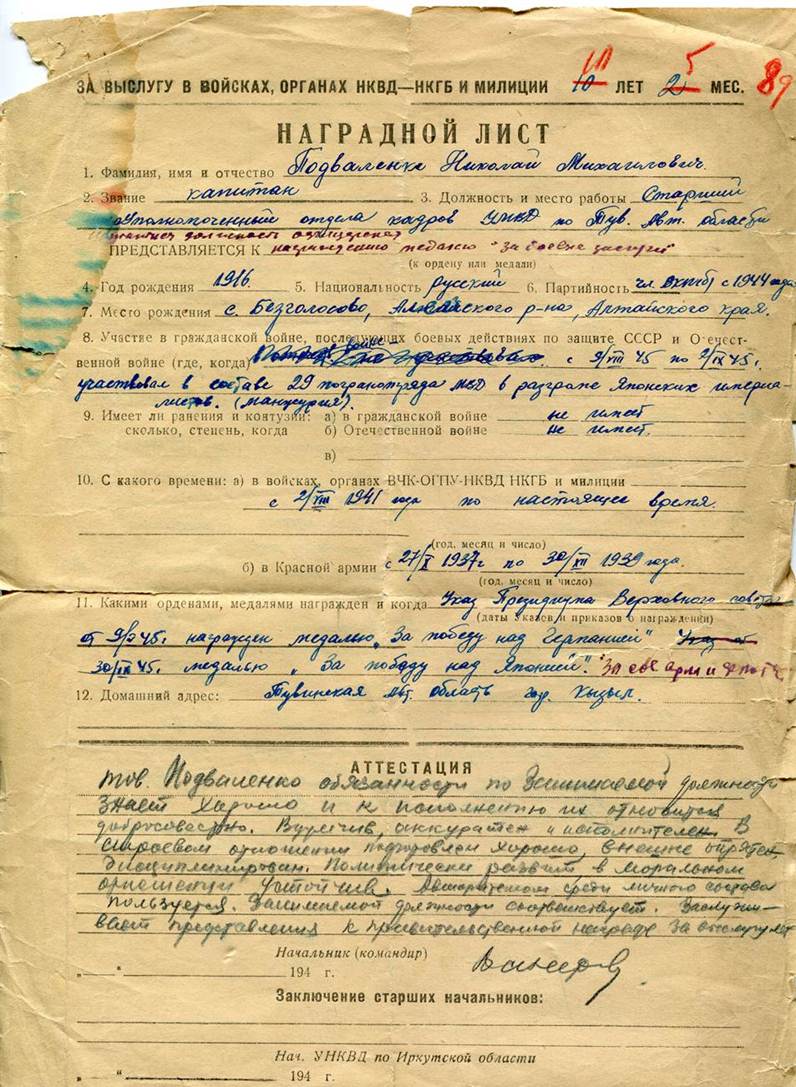 ЗА ВЫСЛУГУ В ВОЙСКАХ, ОРГАНАХ НКВД—НКГБ И МИЛИЦИИ 10 ЛЕТ 5 МЕС. 89
НАГРАДНОЙ ЛИСТ
1. Фамилия, имя и отчество Подваленко Николай Михайлович.
2. Звание капитан 3. Должность и место работы Старший
Уполномоченный отдела кадров УМВД по Тув. Авт. области
должность
ПРЕДСТАВЛЯЕТСЯ К награждению медалью "За боевые заслуги"
(к ордену или медали)
4. Год рождения 1916. 5. Национальность русский 6. Партийность чл. вкп(б) с 1944 года
7. Место рождения с. Безголосово, Алейского р-на, Алтайского края.
8. Участие в гражданской войне, последующих боевых действиях по защите СССР и Отечест-
венной войне (где, когда) с 9/VIII 45 по 2/IX 45г.
участвовал в составе 29 погранотряда в разгроме Японских империа-
листов. (Манжурия).
9. Имеет ли ранения и контузии: а) в гражданской войне не имеет
сколько, степень, когда б) Отечественной войне не имеет.
в)
10. С какого времени: а) в войсках, органах ВЧК-ОГПУ-НКВД НКГБ и милиции
с 2/VIII 1941 года по настоящее время.
(год, месяц и число)
б) в Красной армии с 27/X 1937г по 30/XII 1939 года.
(год, месяц и число)
11. Какими орденами, медалями награжден и когда Указ Президиума Верховного совета
(даты Указов и приказов о награждении)
от 9/V 45г. награжден медалью „За победу над Германией" Указ от
30/IX 45г. медалью „За победу над Японией". "
12. Домашний адрес: Тувинская Авт. область гор. Кызыл.
АТТЕСТАЦИЯ
тов. Подваленко обязанности по Занимаемой должности
знает хорошо и к исполнению их относится
добросовестно. Вдумчив, аккуратен и исполнителен. В
строевом отношении подготовлен хорошо, внешне опрятен,
дисциплинирован. Политически развит в моральном
отношении устойчив. Авторитетом среди личного состава
пользуется. Занимаемой должности соответствует. Заслужи-
вает представления к правительственной награде за выслугу лет
Начальник (командир)
„ " 194 г.
Заключение старших начальников:
Нач. УНКВД по Иркутской области
„ " 194 г.